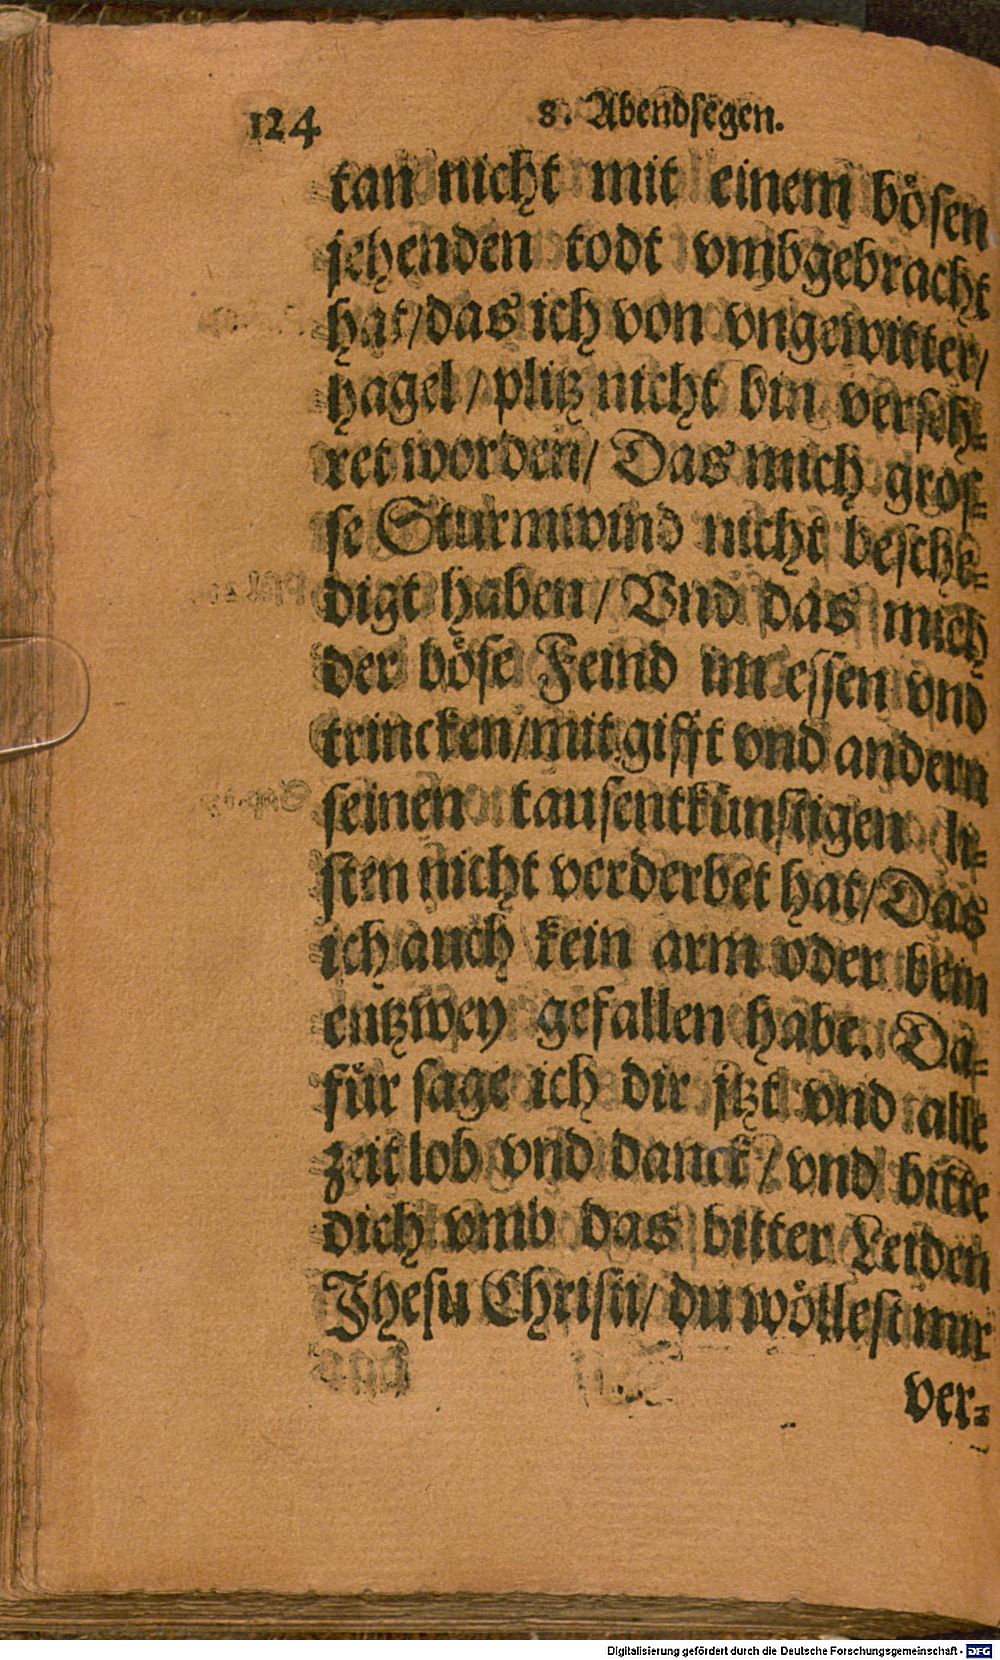 124
8. Abendsegen.
tan nicht mit einem bösen
jehenden todt vmbgebracht
hat/das ich von vngewitter/
hagel/plitz nicht bin verseh-
ret worden/Das mich gros-
se Sturmwind nicht besche-
digt haben/Vnd das mich
der böse Feind im essen vnd
trincken/mit gifft vnd andern
seinen tausentkünstigen li-
sten nicht verderbet hat/Das
ich auch kein arm oder bein
entzwey gefallen habe. Da-
für sage ich dir jtzt vnd alle
zeit lob vnd danck/vnd bitte
dich vmb das bitter Leiden
Jhesu Christi/du wöllest mir
ver-
Digitalisierung gefördert durch die Deutsche Forschungsgemeinschaft - DFG